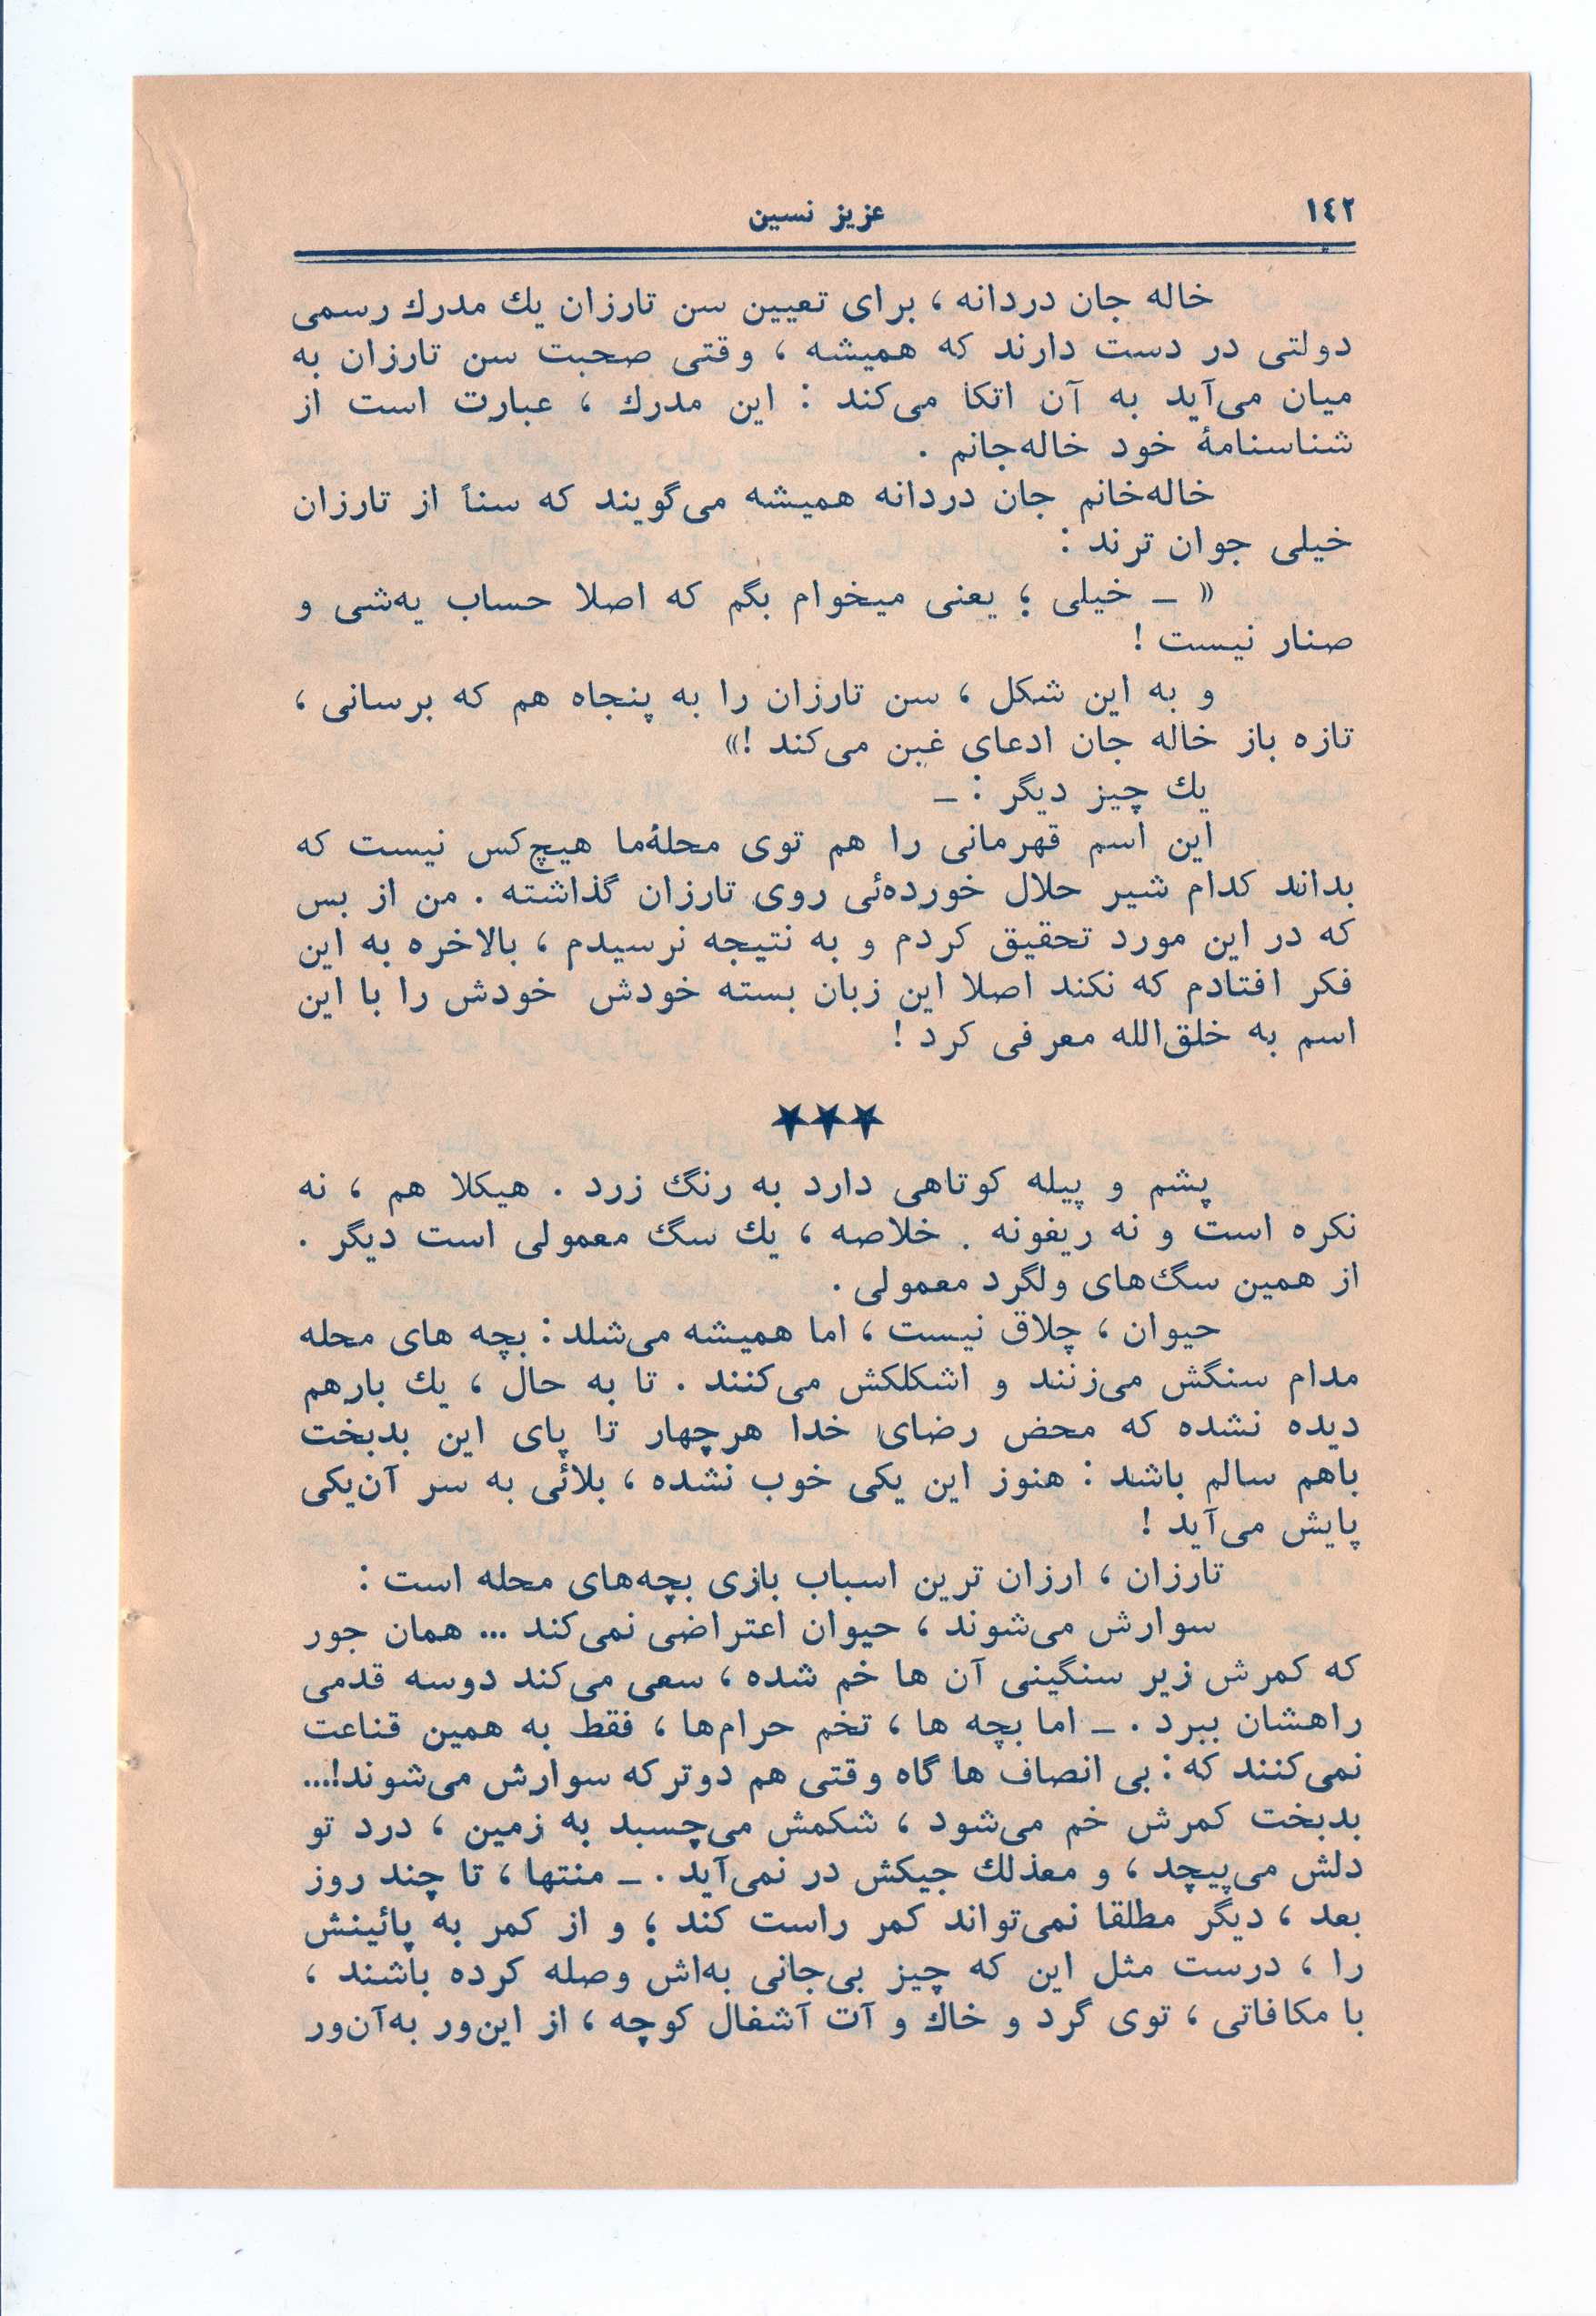 ۱٤۲
عزیز نسین
خاله جان دردانه ، برای تعیین سن تارزان یك مدرك رسمی
دولتی در دست دارند که همیشه ، وقتی صحبت سن تارزان به
میان می‌آید به آن اتکا می‌کند : این مدرك ، عبارت است از
شناسنامهٔ خود خاله‌جانم .
خاله‌خانم جان دردانه همیشه می‌گویند که سناً از تارزان
خیلی جوان ترند :
« ـ خیلی ؛ یعنی میخوام بگم که اصلا حساب یه‌شی و
صنار نیست !
و به این شکل ، سن تارزان را به پنجاه هم که برسانی ،
تازه باز خاله جان ادعای غبن می‌کند !»
یك چیز دیگر : ـ
این اسم قهرمانی را هم توی محلهٔ‌ما هیچ‌کس نیست که
بداند کدام شیر حلال خورده‌ئی روی تارزان گذاشته . من از بس
که در این مورد تحقیق کردم و به نتیجه نرسیدم ، بالاخره به این
فکر افتادم که نکند اصلا این زبان بسته خودش خودش را با این
اسم به خلق‌الله معرفی کرد !
★★★
پشم و پیله کوتاهی دارد به رنگ زرد . هیکلا هم ، نه
نکره است و نه ریفونه . خلاصه ، یك سگ معمولی است دیگر .
از همین سگ‌های ولگرد معمولی .
حیوان ، چلاق نیست ، اما همیشه می‌شلد : بچه های محله
مدام سنگش می‌زنند و اشکلکش می‌کنند . تا به حال ، یك بارهم
دیده نشده که محض رضای خدا هرچهار تا پای این بدبخت
باهم سالم باشد : هنوز این یکی خوب نشده ، بلائی به سر آن‌یکی
پایش می‌آید !
تارزان ، ارزان ترین اسباب بازی بچه‌های محله است :
سوارش می‌شوند ، حیوان اعتراضی نمی‌کند ... همان جور
که کمرش زیر سنگینی آن ها خم شده ، سعی می‌کند دوسه قدمی
راهشان ببرد . ـ اما بچه ها ، تخم حرام‌ها ، فقط به همین قناعت
نمی‌کنند که : بی انصاف ها گاه وقتی هم دوترکه سوارش می‌شوند!...
بدبخت کمرش خم می‌شود ، شکمش می‌چسبد به زمین ، درد تو
دلش می‌پیچد ، و معذلك جیکش در نمی‌آید . ـ منتها ، تا چند روز
بعد ، دیگر مطلقا نمی‌تواند کمر راست کند ؛ و از کمر به پائینش
را ، درست مثل این که چیز بی‌جانی به‌اش وصله کرده باشند ،
با مکافاتی ، توی گرد و خاك و آت آشغال کوچه ، از این‌ور به‌آن‌ور